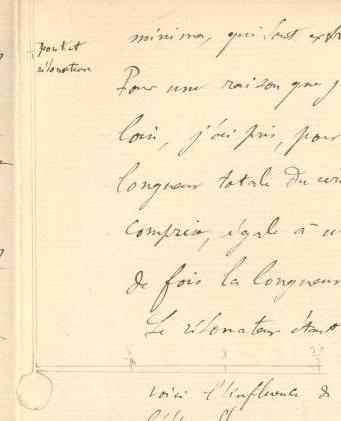 pont et
résonateur
minima, qui sont extr
Pour une raison que j
loin, j'ai pris, pour
longueur totale du
comprise, égale à u
de fois la longueur
Le résonateur étant
voici l'influence de